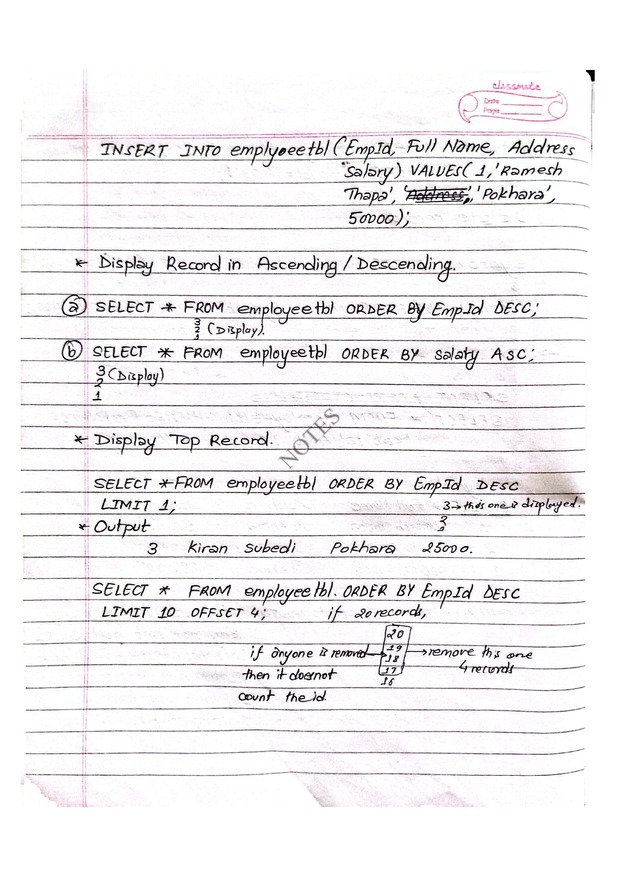 classmate
Date
Page
INSERT INTO emplyoeetbl (EmpId, Full Name, Address
Salary) VALUES( 1, 'Ramesh
Thapa', 'Address', 'Pokhara',
50000);
* Display Record in Ascending / Descending.
(a) SELECT * FROM employeetbl ORDER BY EmpId DESC;
3
2 (Display).
1
(b) SELECT * FROM employeetbl ORDER BY Salary ASC;
3 (Display)
2
1
NOTES
* Display Top Record.
SELECT * FROM employeetbl ORDER BY EmpId DESC
LIMIT 1;
3 → this one is displayed.
2
1
* Output
3 Kiran Subedi Pokhara 25000.
SELECT * FROM employeetbl. ORDER BY EmpId DESC
LIMIT 10 OFFSET 4; if 20 records,
20
19
18
17
16
if anyone is removed →
then it doesnot
count the id
→ remove this one
4 records